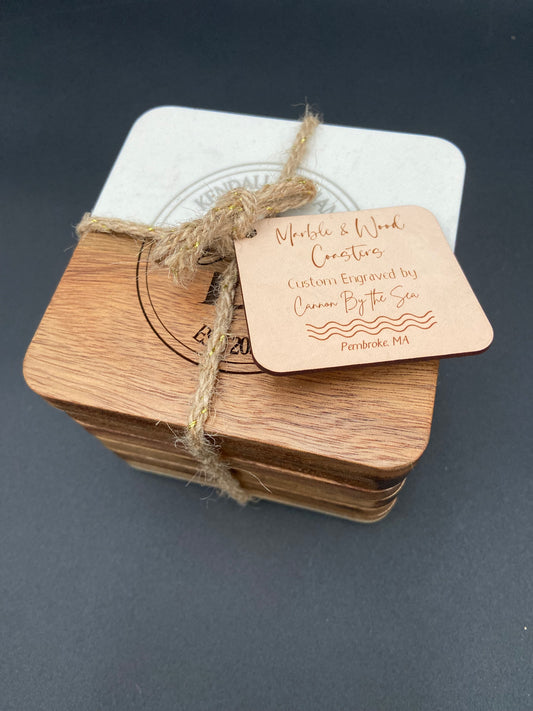 KENDALL
EST
Marble & Wood
Coasters
Custom Engraved by
Cannon By the Sea
Pembroke, MA